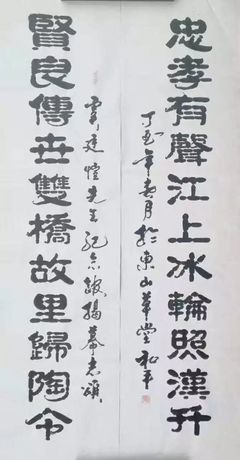 忠孝有聲江上冰輪照漢
丁酉年春月於東山草堂和平
廷愷先生紀念館揭幕志頌
賢良傳世雙橋故里歸陶令